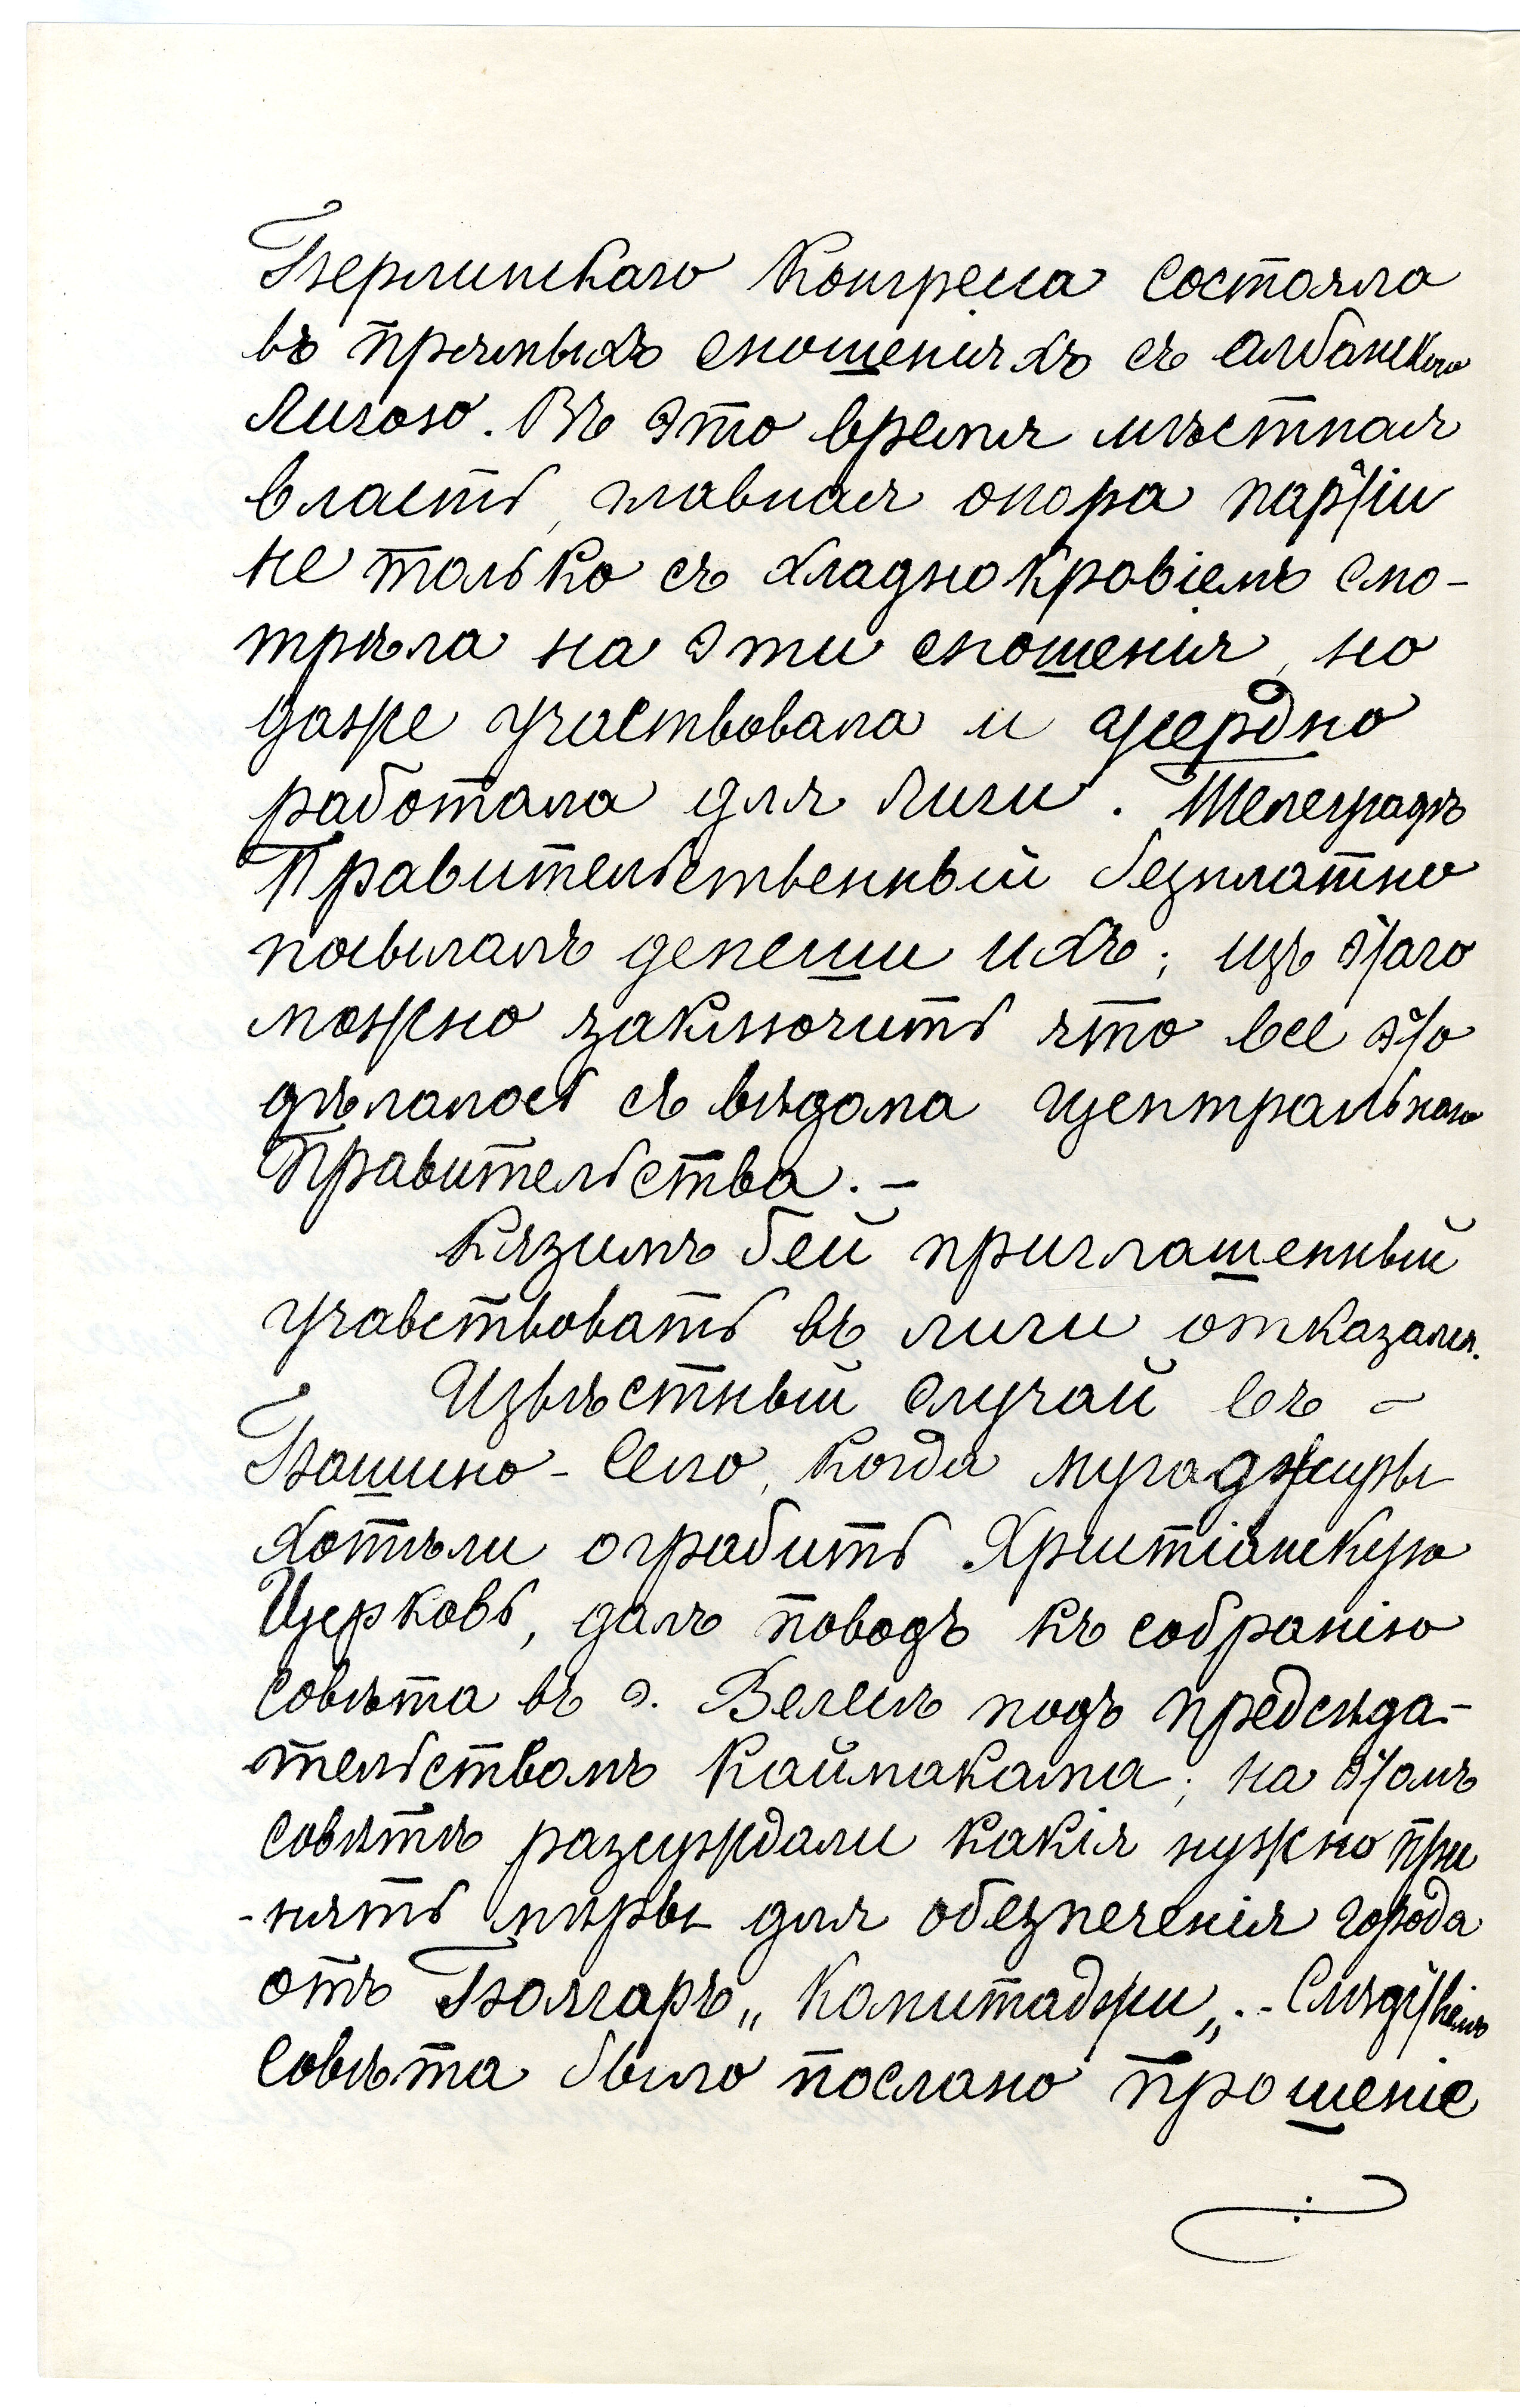 Берлинскаго Конгресса состояла
въ прямыхъ сношеніяхъ съ албанскою
Лигою. Въ это время мѣстная
власть, главная опора партіи
не только съ хладнокровіемъ смо-
трѣла на эти сношенія, но
даже участвовала и усердно
работала для Лиги. Телеграфъ
Правительственный безплатно
посылалъ депеши ихъ; изъ этаго
можно заключить что все это
дѣлалось съ вѣдома центральнаго
Правительства. –
Кязимъ бей приглашенный
учавствовать въ лиги отказался.
Извѣстный случай въ –
Башино-Село, когда мугаджиры
хотѣли ограбить Христіанскую
Церковь, далъ поводъ къ собранію
совѣта въ г. Велесъ подъ предсѣда-
тельствомъ Каймакама; на этомъ
совѣтѣ разсуждали какія нужно при
-нять мѣры для обезпеченія города
отъ Болгаръ „Комитаджи„. - Слѣдствіемъ
Совѣта было послано прошеніе